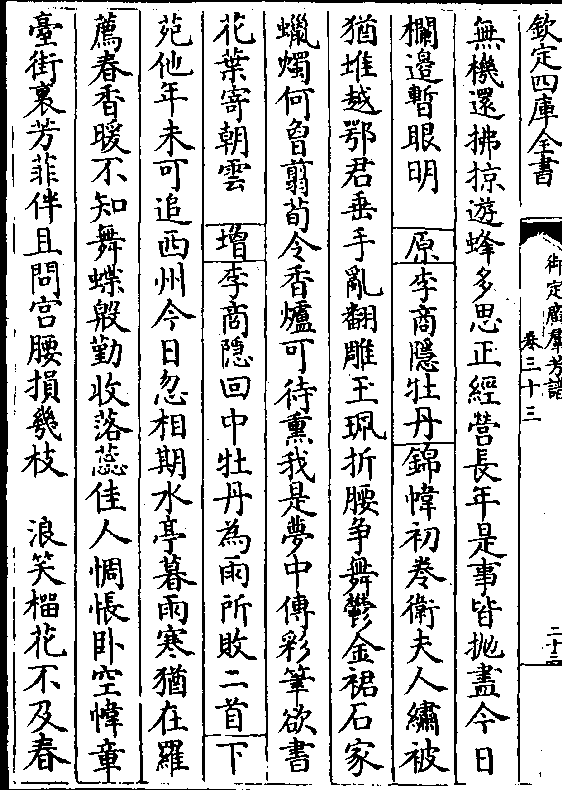 欽定四庫全書
御定廣羣芳譜
卷三十三
無機還拂掠遊蜂多思正經營長年是事皆抛盡今日
欄邉暫眼明　原李商隱牡丹錦幃初卷衛夫人繡被
猶堆越鄂君垂手亂翻雕玉珮折腰争舞鬱金裙石家
蠟燭何曾翦荀令香爐可待熏我是夢中傳彩筆欲書
花葉寄朝雲　增李商隠回中牡丹為雨所敗二首下
苑他年未可追西州今日忽相期水亭暮雨寒猶在羅
薦春香暖不知舞蝶殷勤收落蕊佳人惆悵卧空幃章
臺街裏芳菲伴且問宫腰損幾枝　浪笑榴花不及春